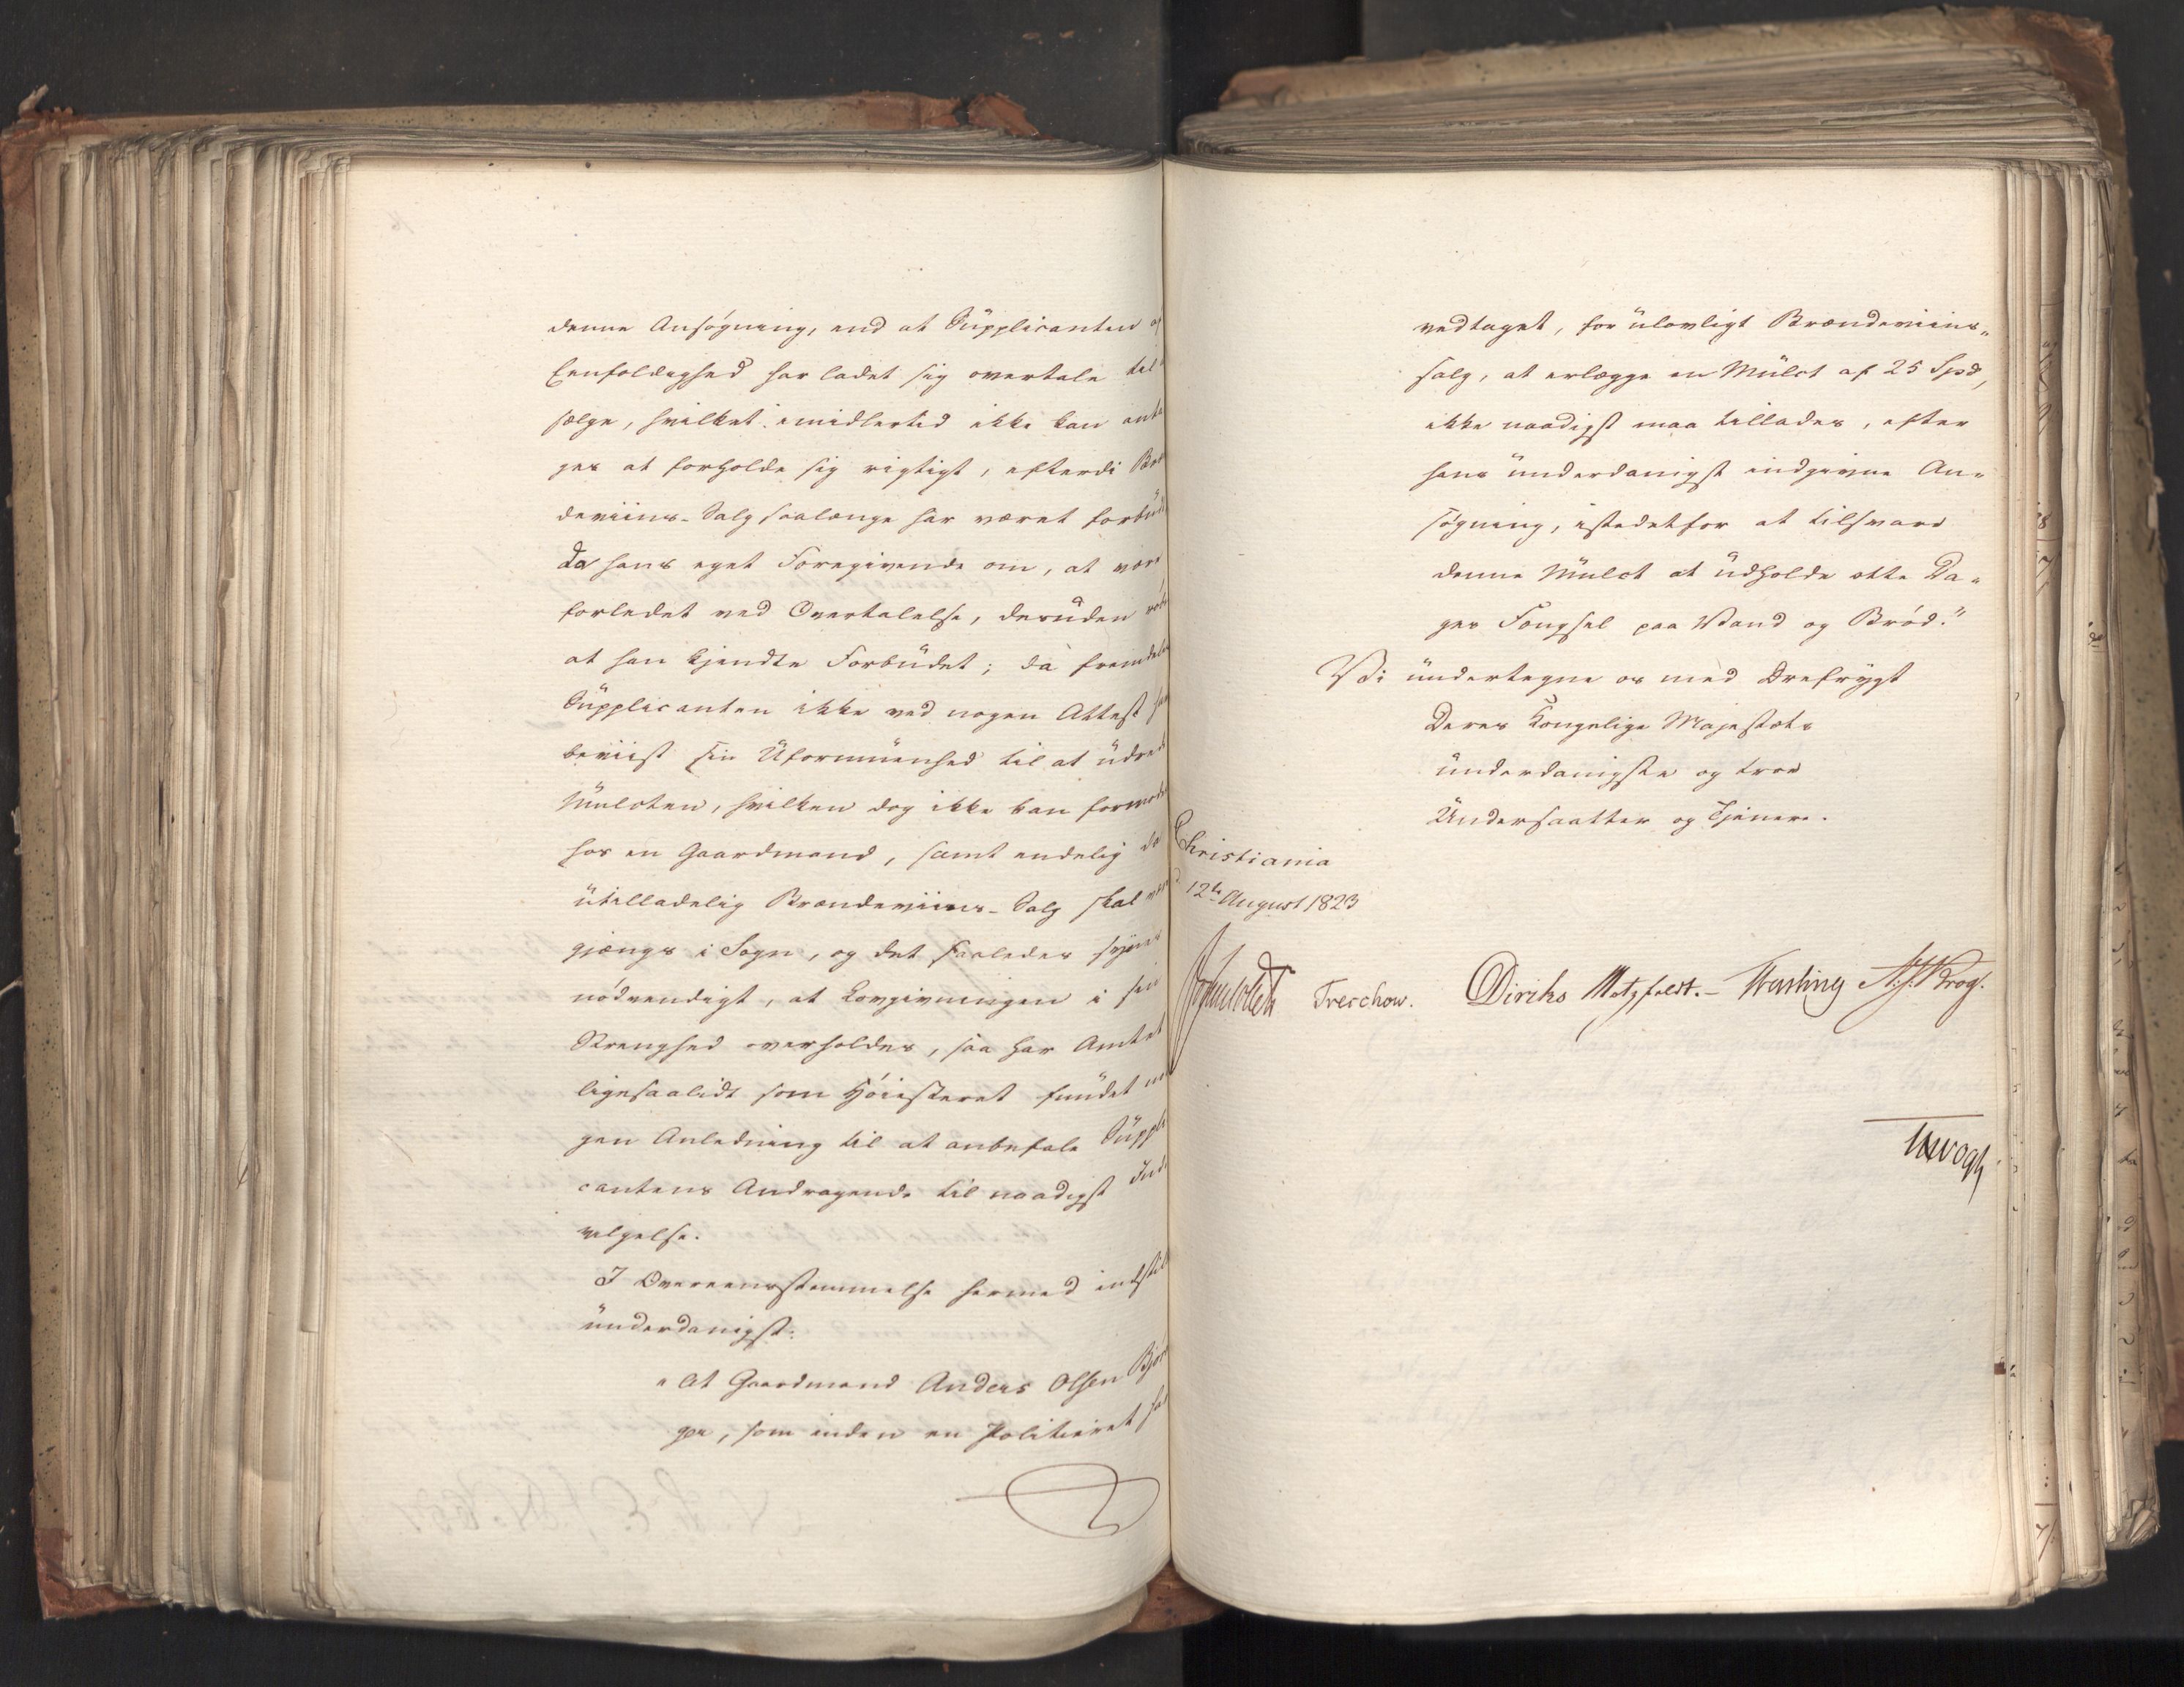 denne Ansøgning, end at Supplicanten af
Eenfoldighed har ladet sig overtale til
sælge, hvilket imidlertid ikke kan anta
ges at forholde sig rigtigt, efterdi Bræn
deviins-Salg saalænge har været forbud
da hans eget Foregivende om, at være
forledet ved Overtalelse, desuden røbe
at han kjendte Forbudet; da fremdeles
Supplicanten ikke ved nogen Attest har
beviist sin Uformuenhed til at udrede
Mulcten, hvilken dog ikke kan formodes
hos en Gaardmand, samt endelig da
utilladelig Brændeviins-Salg skal være
gjængs i Sogn, og det saaledes synes
nödvendigt, at Lovgivningen i sin
Strenghed overholdes, saa har Amtet
ligesaalidt som Höiesteret fundet no
gen Anledning til at anbefale Suppli
cantens Andragende til naadigst Ind
vilgelse.
I Overeensstemmelse hermed indstil
underdanigst:
"At Gaardmand Anders Olsen Björ
ge, som inden en Politieret har
vedtaget, for ulovligt Brændeviins„
salg, at erlægge en Mulct af 25 Spd,
ikke naadigst maa tillades, efter
hans underdanigst indgivne An„
søgning, istedetfor at tilsvare
denne Mulct at udholde otte Da„
ges Fængsel paa Vand og Bröd."
Vi undertegne os med Ærefrygt
Deres Kongelige Majestæts
underdanigste og troe
Undersaatter og Tjenere.
Christiania
d 12te August 1823
Treschow. Diriks Motzfeldt.- Fasting Krog.
Vogt